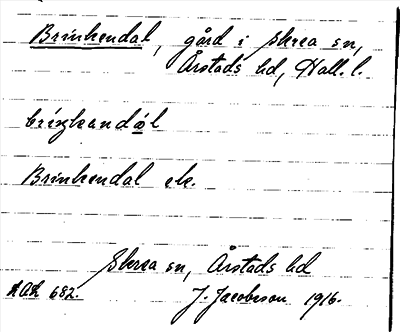 Brinkendal, gård i Skrea sn,
Årstads hd, Hall. l.
brìŋkandál
Brinkendal ek.
Skrea sn, Årstads hd
682. J. Jacobsson 1916.